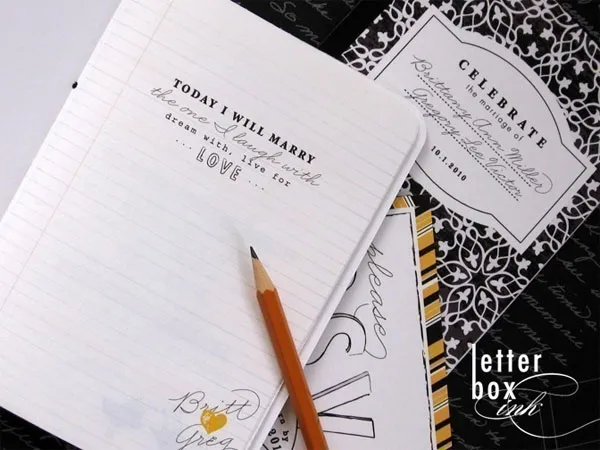 TODAY I WILL MARRY
the one I laugh with
dream with, live for
... LOVE ...
Britt
&
Greg
CELEBRATE
the marriage of
Brittany Ann Miller
Gregory Lee Victor
10.1.2010
please
SV
n by
201
letter
box
ink